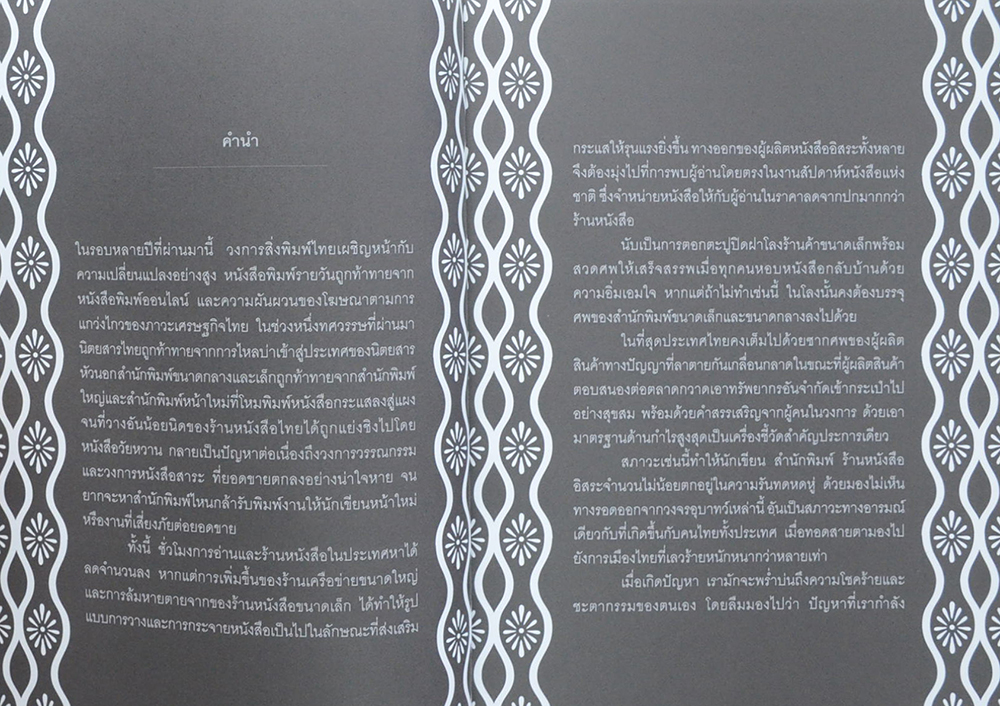 คำนำ
ในรอบหลายปีที่ผ่านมานี้ วงการสิ่งพิมพ์ไทยเผชิญหน้ากับ
ความเปลี่ยนแปลงอย่างสูง หนังสือพิมพ์รายวันถูกท้าทายจาก
หนังสือพิมพ์ออนไลน์ และความผันผวนของโฆษณาตามการ
แกว่งไกวของภาวะเศรษฐกิจไทย ในช่วงหนึ่งทศวรรษที่ผ่านมา
นิตยสารไทยถูกท้าทายจากการไหลบ่าเข้าสู่ประเทศของนิตยสาร
หัวนอกสำนักพิมพ์ขนาดกลางและเล็กถูกท้าทายจากสำนักพิมพ์
ใหญ่และสำนักพิมพ์หน้าใหม่ที่โหมพิมพ์หนังสือกระแสลงสู่แผง
จนที่วางอันน้อยนิดของร้านหนังสือไทยได้ถูกแย่งชิงไปโดย
หนังสือวัยหวาน กลายเป็นปัญหาต่อเนื่องถึงวงการวรรณกรรม
และวงการหนังสือสาระ ที่ยอดขายตกลงอย่างน่าใจหาย จน
ยากจะหาสำนักพิมพ์ไหนกล้ารับพิมพ์งานให้นักเขียนหน้าใหม่
หรืองานที่เสี่ยงภัยต่อยอดขาย
ทั้งนี้ ชั่วโมงการอ่านและร้านหนังสือในประเทศหาได้
ลดจำนวนลง หากแต่การเพิ่มขึ้นของร้านเครือข่ายขนาดใหญ่
และการล้มหายตายจากของร้านหนังสือขนาดเล็ก ได้ทำให้รูป
แบบการวางและการกระจายหนังสือเป็นไปในลักษณะที่ส่งเสริม
กระแสให้รุนแรงยิ่งขึ้น ทางออกของผู้ผลิตหนังสืออิสระทั้งหลาย
จึงต้องมุ่งไปที่การพบผู้อ่านโดยตรงในงานสัปดาห์หนังสือแห่ง
ชาติ ซึ่งจำหน่ายหนังสือให้กับผู้อ่านในราคาลดจากปกมากกว่า
ร้านหนังสือ
นับเป็นการตอกตะปูปิดฝาโลงร้านค้าขนาดเล็กพร้อม
สวดศพให้เสร็จสรรพเมื่อทุกคนหอบหนังสือกลับบ้านด้วย
ความอิ่มเอมใจ หากแต่ถ้าไม่ทำเช่นนี้ ในโลงนั้นคงต้องบรรจุ
ศพของสำนักพิมพ์ขนาดเล็กและขนาดกลางลงไปด้วย
ในที่สุดประเทศไทยคงเต็มไปด้วยซากศพของผู้ผลิต
สินค้าทางปัญญาที่ลาตายกันเกลื่อนกลาดในขณะที่ผู้ผลิตสินค้า
ตอบสนองต่อตลาดกวาดเอาทรัพยากรอันจำกัดเข้ากระเป๋าไป
อย่างสุขสม พร้อมด้วยคำสรรเสริญจากผู้คนในวงการ ด้วยเอา
มาตรฐานด้านกำไรสูงสุดเป็นเครื่องชี้วัดสำคัญประการเดียว
สภาวะเช่นนี้ทำให้นักเขียน สำนักพิมพ์ ร้านหนังสือ
อิสระจำนวนไม่น้อยตกอยู่ในความรันทดหดหู่ ด้วยมองไม่เห็น
ทางรอดออกจากวงจรอุบาทว์เหล่านี้ อันเป็นสภาวะทางอารมณ์
เดียวกับที่เกิดขึ้นกับคนไทยทั้งประเทศ เมื่อทอดสายตามองไป
ยังการเมืองไทยที่เลวร้ายหนักหนากว่าหลายเท่า
เมื่อเกิดปัญหา เรามักจะพร่ำบ่นถึงความโชคร้ายและ
ชะตากรรมของตนเอง โดยลืมมองไปว่า ปัญหาที่เรากำลัง